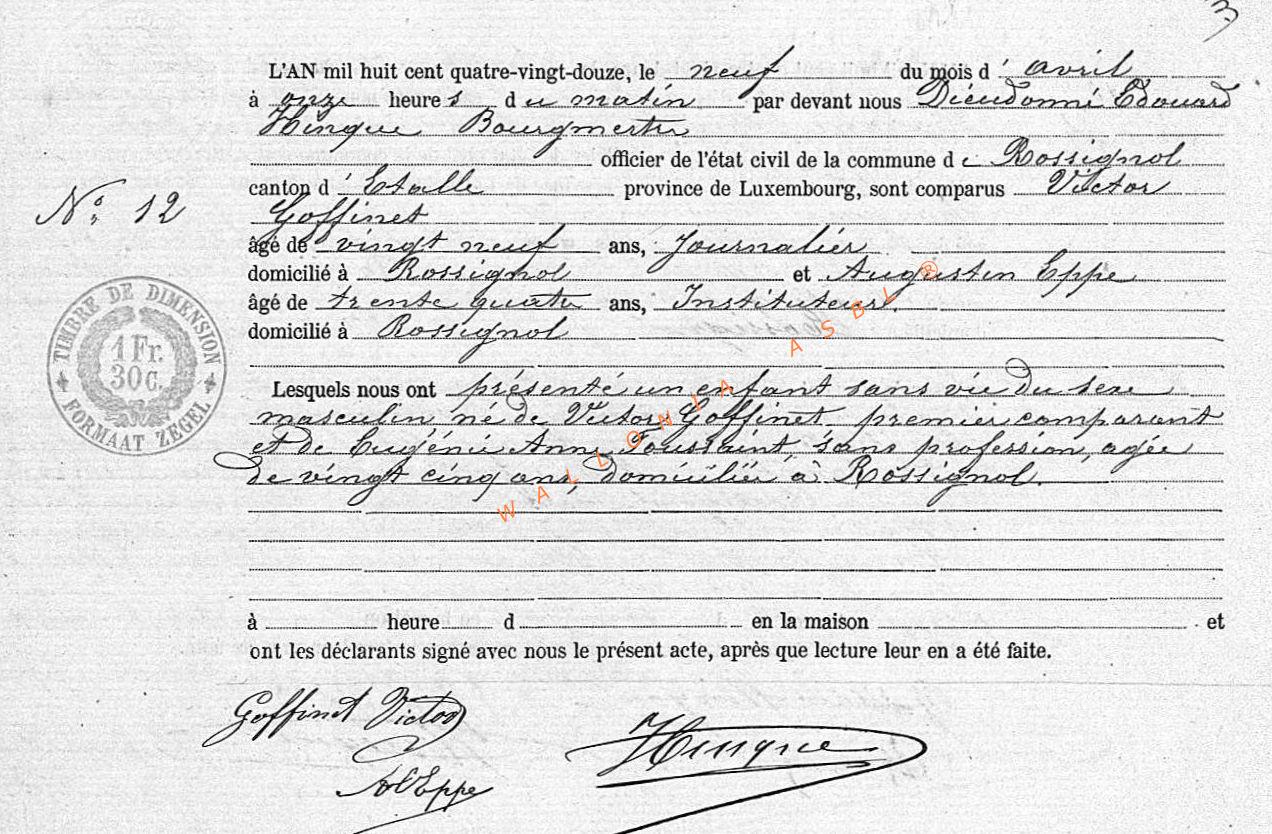 3
L'AN mil huit cent quatre-vingt-douze, le neuf du mois d'avril
à onze heures du matin par devant nous Dieudonné Edouard
Hinque Bourgmestre
officier de l'état civil de la commune de Rossignol
canton d'Etalle province de Luxembourg, sont comparus Victor
Goffinet
âgé de vingt neuf ans, Journalier
domicilié à Rossignol et Augustin Eppe
âgé de trente quatre ans, Instituteur.
domicilié à Rossignol
Lesquels nous ont présenté un enfant sans vie du sexe
masculin, né de Victor Goffinet, premier comparant
et de Eugénie Anne Toussaint, sans profession, agée
de vingt cinq ans, domiciliée à Rossignol.
à heure d en la maison et
ont les déclarants signé avec nous le présent acte, après que lecture leur en a été faite.
Goffinet Victor
Hinque
Eppe
No. 12
TIMBRE DE DIMENSION
1 Fr.
30 C.
FORMAAT ZEGEL
WALLONIA ASBL ®